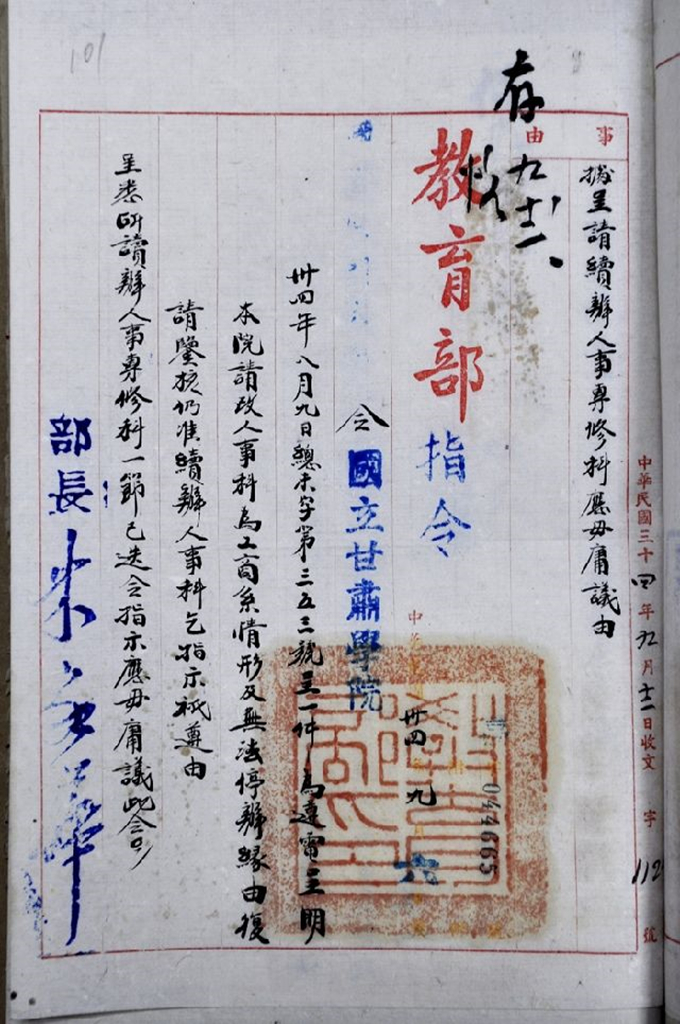 101
中華民國三十四年九月十二日收文 字 112 號
事由
據呈請續辦人事專修科應毋庸議由
存
九、十二、
教育部
指令
中華
卅四 九 六
044665
令國立甘肅學院
卅四年八月九日總未字第三五三號呈一件為遵電呈明
本院請改人事科為工商系情形及無法停辦緣由復
請鑒核仍准續辦人事科乞指示祇遵由
呈悉所請續辦人事專修科一節已迭令指示應毋庸議此令
部長朱家驊